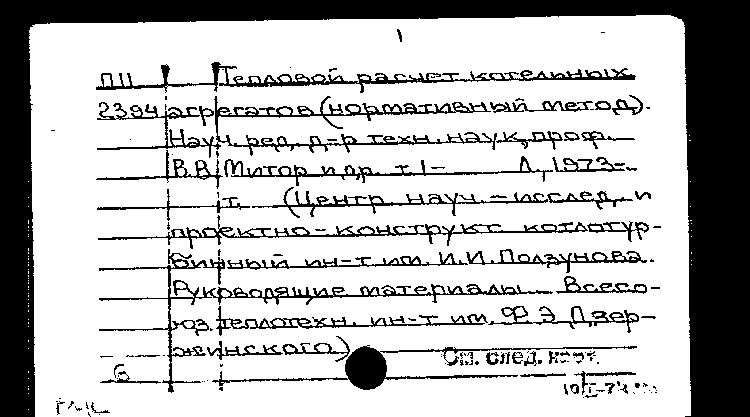 1
П11 Тепловой расчет котельных
2394 агрегатов (нормативный метод).
Науч. ред. д-р техн. наук, проф.
В.В. Митор и др. т. 1- Л., 1973-
т. (Центр. науч. - исслед. и
проектно-конструкт. котлотур-
бинный ин-т им. И.И. Ползунова.
Руководящие материалы. Всесо-
юз. теплотехн. ин-т им. Ф.Э. Дзер-
жинского)
См. след. карт.
6